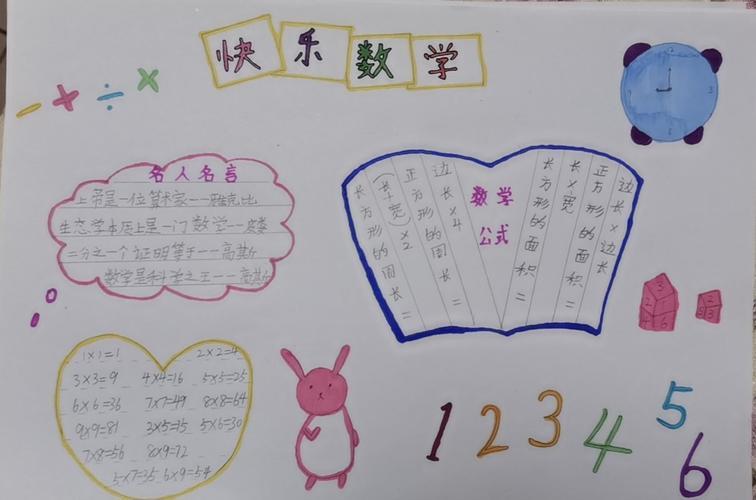 快乐数学
− + ÷ ×
12
3
6
名人名言
上帝是一位算术家——雅克比
生态学本质上是一门数学——
二分之一个证明等于——高斯
数学是科学之王——高斯
长方形的周长=
(长+宽)×2
正方形的周长=
边长×4
数学
公式
长方形的面积=
长×宽
正方形的面积=
边长×边长
1×1=1 2×2=4
3×3=9 4×4=16 5×5=25
6×6=36 7×7=49 8×8=64
9×9=81 3×5=15 5×6=30
7×8=56 8×9=72
5×7=35 6×9=54
1 2 3 4 5 6